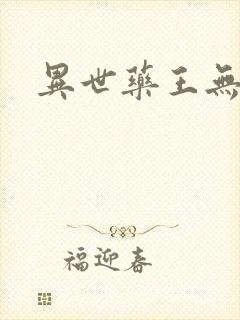 異世藥王無
福迎春